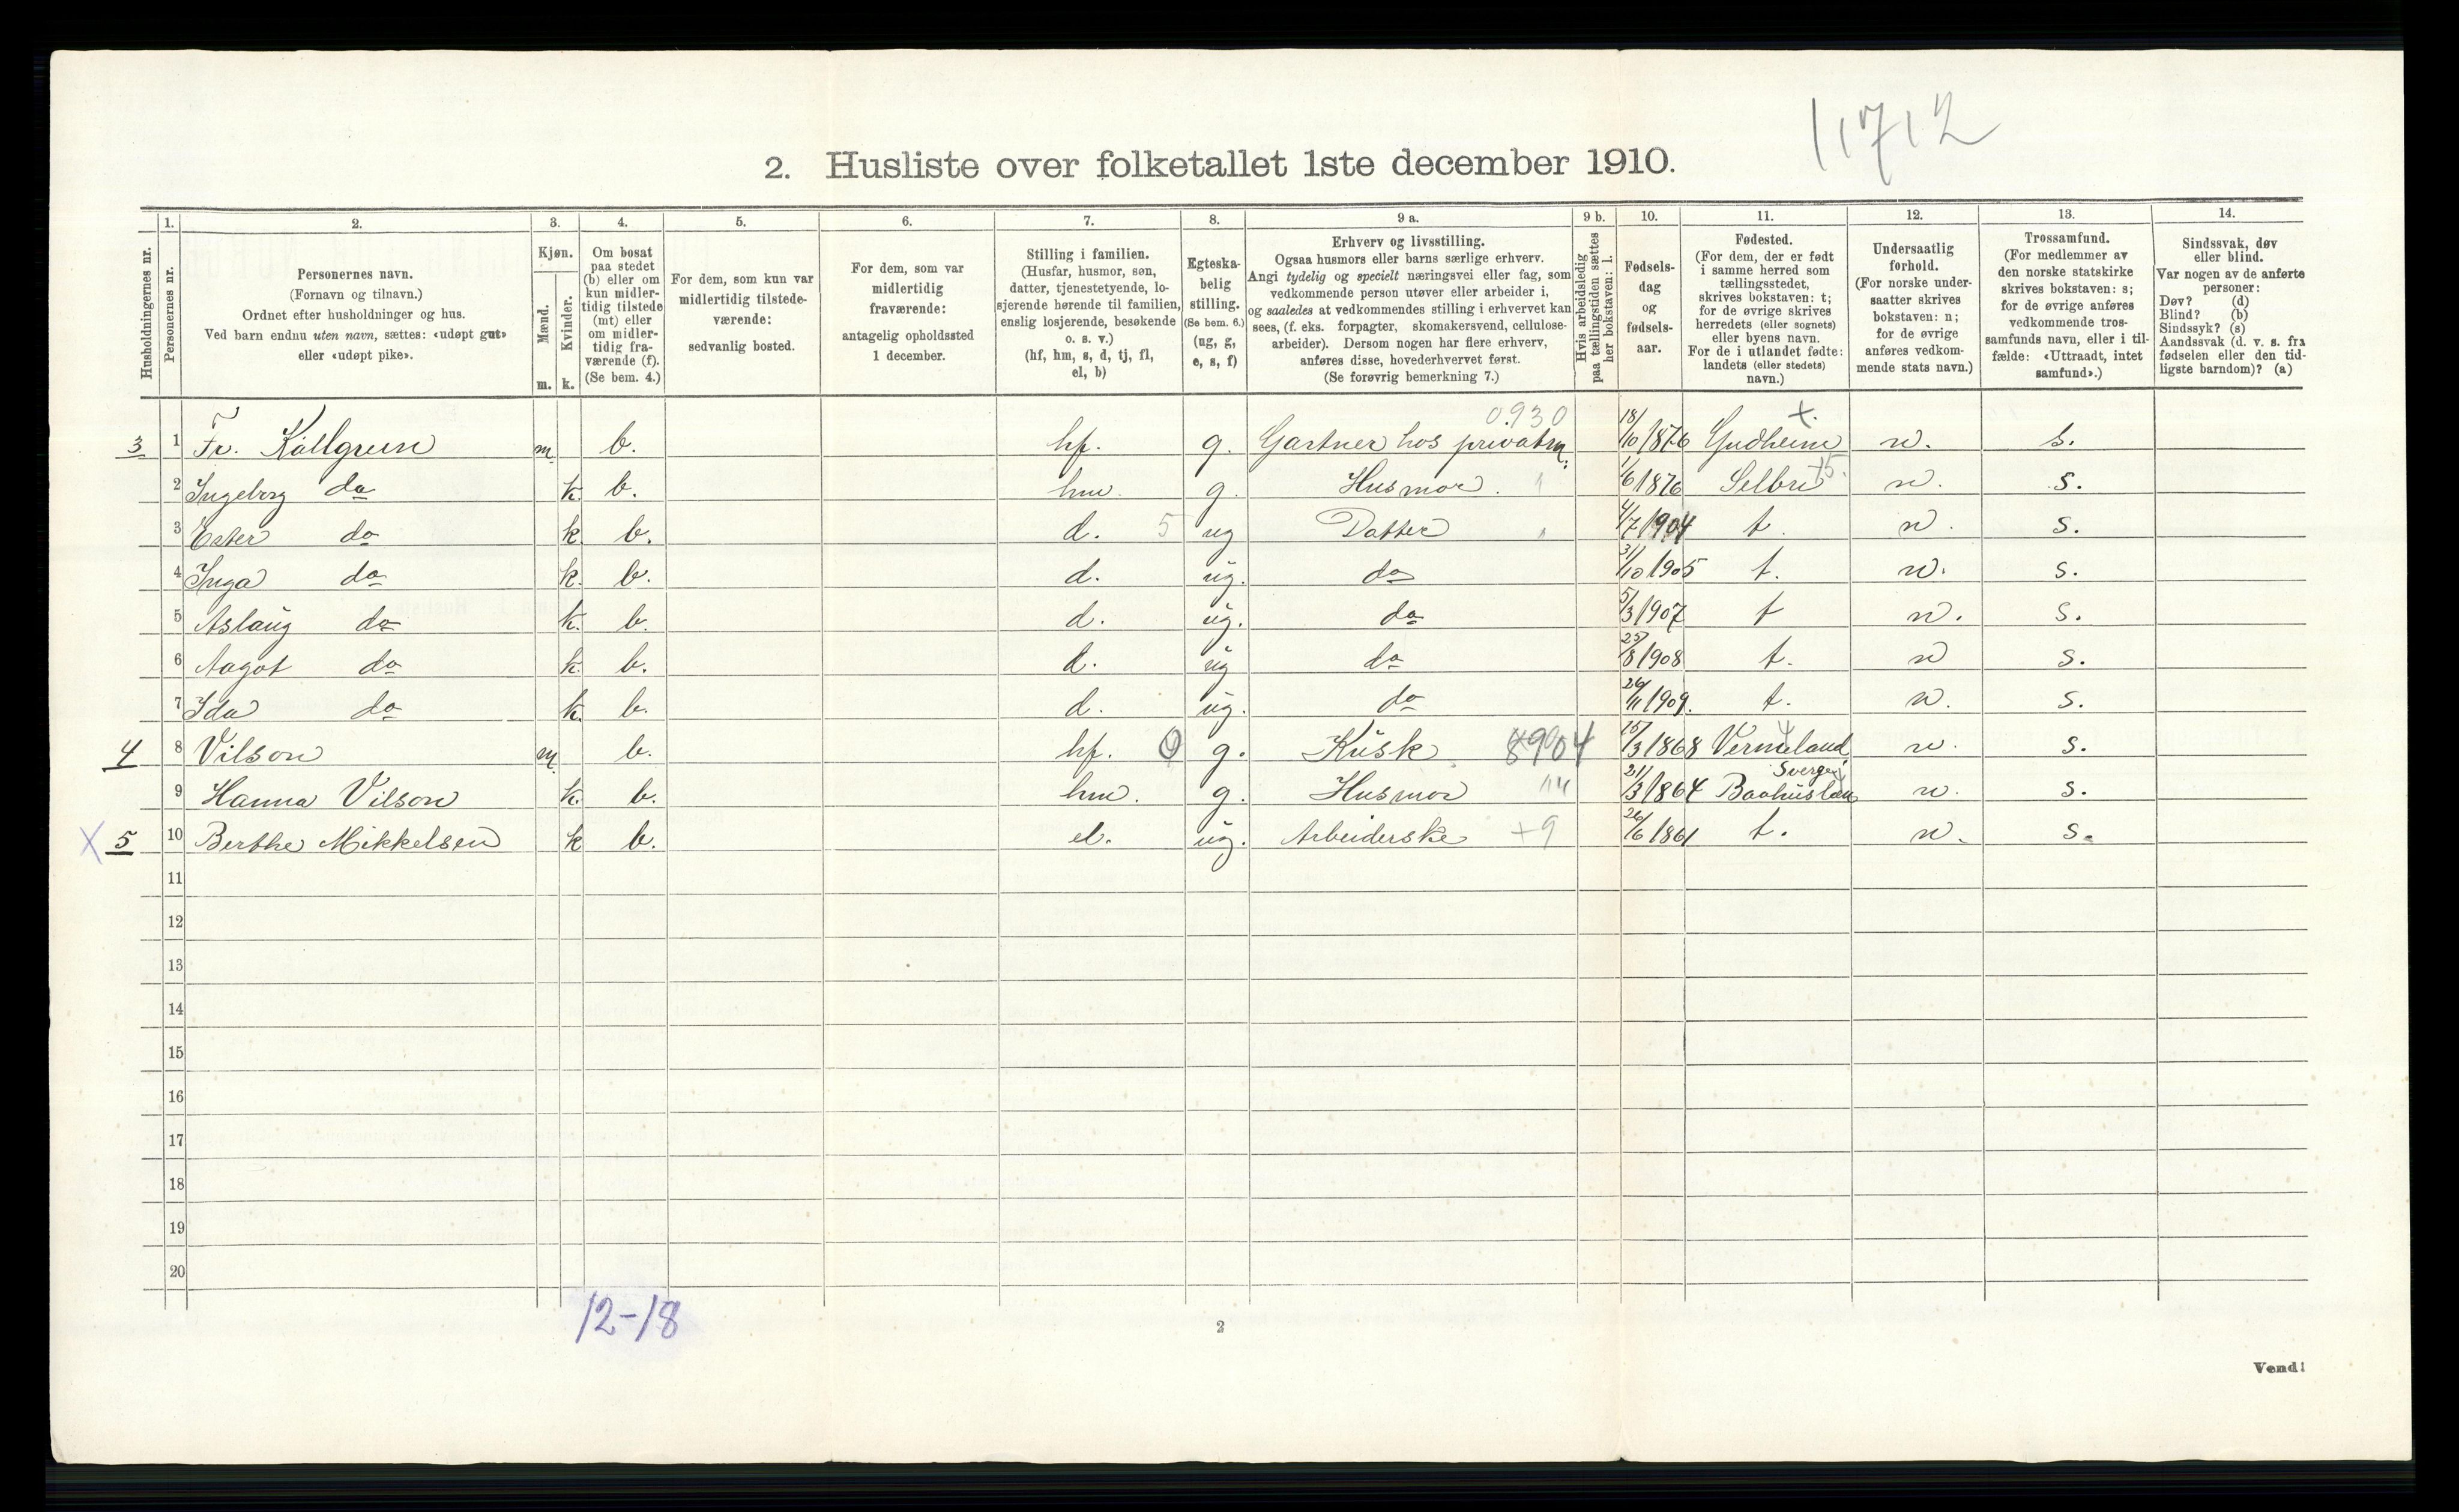 11712
2. Husliste over folketallet 1ste december 1910.
Husholdningernes nr.
1.
Personernes nr.
2.
Personernes navn.
(Fornavn og tilnavn.)
Ordnet efter husholdninger og hus.
Ved barn endnu uten navn, sættes: «udøpt gut»
eller «udøpt pike».
3.
Kjøn.
Mænd.
Kvinder.
m. k.
4.
Om bosat
paa stedet
(b) eller om
kun midler-
tidig tilstede
(mt) eller
om midler-
tidig fra-
værende (f).
(Se bem. 4.)
5.
For dem, som kun var
midlertidig tilstede-
værende:
sedvanlig bosted.
6.
For dem, som var
midlertidig
fraværende:
antagelig opholdssted
1 december.
7.
Stilling i familien.
(Husfar, husmor, søn,
datter, tjenestetyende, lo-
sjerende hørende til familien,
enslig losjerende, besøkende
o. s. v.)
(hf, hm, s, d, tj, fl,
el, b)
8.
Egteska-
belig
stilling.
(Se bem. 6.)
(ug, g,
e, s, f)
9 a.
Erhverv og livsstilling.
Ogsaa husmors eller barns særlige erhverv.
Angi tydelig og specielt næringsvei eller fag, som
vedkommende person utøver eller arbeider i,
og saaledes at vedkommendes stilling i erhvervet kan
sees, (f. eks. forpagter, skomakersvend, cellulose-
arbeider). Dersom nogen har flere erhverv,
anføres disse, hovederhvervet først.
(Se forøvrig bemerkning 7.)
9 b.
Hvis arbeidsledig
paa tællingstiden sættes
her bokstaven: l.
10.
Fødsels-
dag
og
fødsels-
aar.
11.
Fødested.
(For dem, der er født
i samme herred som
tællingsstedet,
skrives bokstaven: t;
for de øvrige skrives
herredets (eller sognets)
eller byens navn.
For de i utlandet fødte:
landets (eller stedets)
navn.)
12.
Undersaatlig
forhold.
(For norske under-
saatter skrives
bokstaven: n;
for de øvrige
anføres vedkom-
mende stats navn.)
13.
Trossamfund.
(For medlemmer av
den norske statskirke
skrives bokstaven: s;
for de øvrige anføres
vedkommende tros-
samfunds navn, eller i til-
fælde: «Uttraadt, intet
samfund».)
14.
Sindssvak, døv
eller blind.
Var nogen av de anførte
personer:
Døv? (d)
Blind? (b)
Sindssyk? (s)
Aandssvak (d. v. s. fra
fødselen eller den tid-
ligste barndom)? (a)
0.930 +.
3 1 Fr. Källgreen m b. hf. g. Gartner hos privatm. 18/10 1876 Gudheim n. s.
2 Ingeborg do k. b. hm. g. Husmor. 1/6 1876 Selbu +5. n. s.
3 Ester do k. b. d. 5 ug Datter 4/7 1904 t. n. s.
4 Inga do k. b. d. ug. do 31/10 1905 t. n. s.
5 Aslaug do k. b. d. ug. do 5/3 1907 t n. s.
6 Aagot do k. b. d. ug do 25/8 1908 t. n s.
7 Ida do k. b. d. ug. do 26/11 1909. t. n. s.
4 8 Vilson m b. hf. 0 g. Kusk. 8904 15/3 1868 Vermeland n. s.
Sverge
9 Hanna Vilson k. b. hm. g. Husmor 21/3 1864 Baahuslen n. s.
X 5 10 Berthe Mikkelsen k b. el. ug. Arbeiderske +9 26/6 1861 t. n. s.
11
12
13
14
15
16
17
18
19
20
12-18
2
Vend!